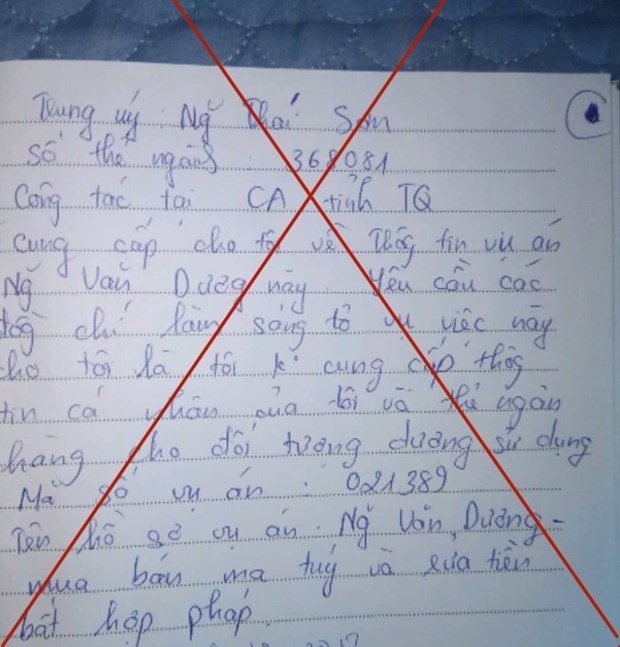 Trung úy : Ng̃ Thái Sơn
Số thẻ ngành : 368081
Công tác tại CA tỉnh TQ
cung cấp cho tôi về thôg tin vụ án
Ng̃ Văn Dương này. Yêu cầu các
đồg chí làm sáng tỏ vụ việc này
cho tôi là tôi k cung cấp thôg
tin cá nhân của tôi và thẻ ngân
hàng cho đối tượng dương sử dụng
Mã số vụ án : 021389
Tên hồ sơ vụ án. Ng̃ Văn Dương -
mua bán ma túy và rửa tiền
bất hợp pháp.